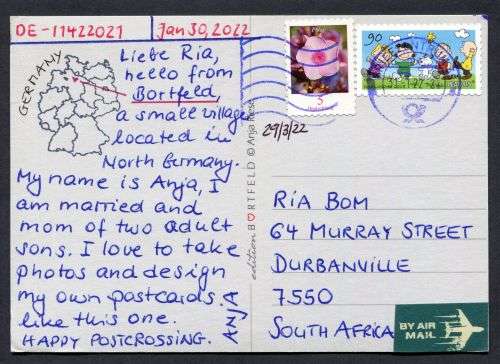 DE-11422021
Jan 30, 2022
GERMANY
Liebe Ria,
hello from
Bortfeld,
a small village
located in
North Germany.
My name is Anja, I
am married and
mom of two adult
sons. I love to take
photos and design
my own postcards
like this one.
HAPPY POSTCROSSING.
ANJA
edition BORTFELD © Anja
5
90
29/3/22
RIA BOM
64 MURRAY STREET
DURBANVILLE
7550
SOUTH AFRIKA
BY AIR
MAIL